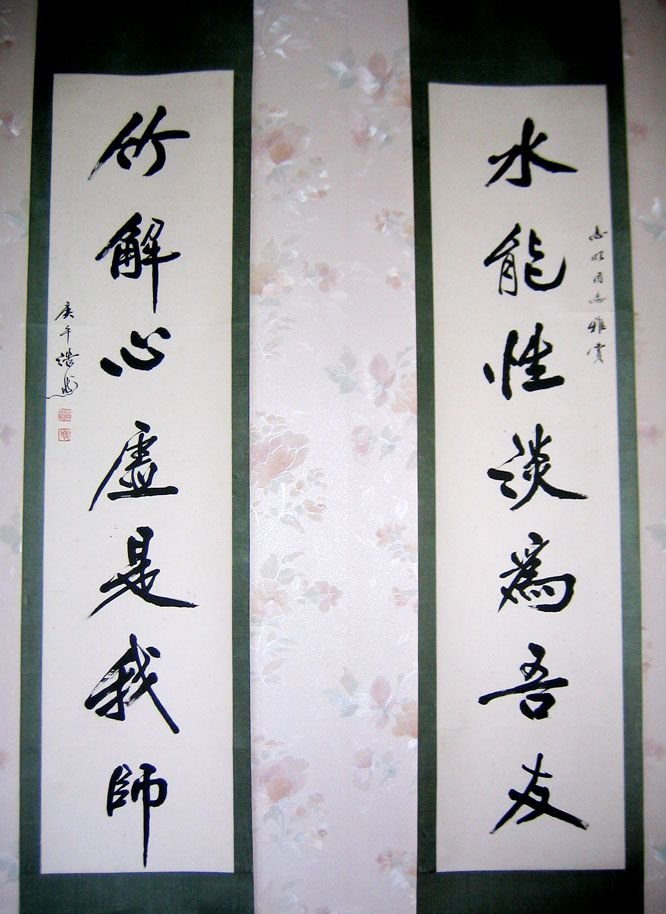 同志雅賞
水能性淡為吾友
竹解心虛是我師
庚午